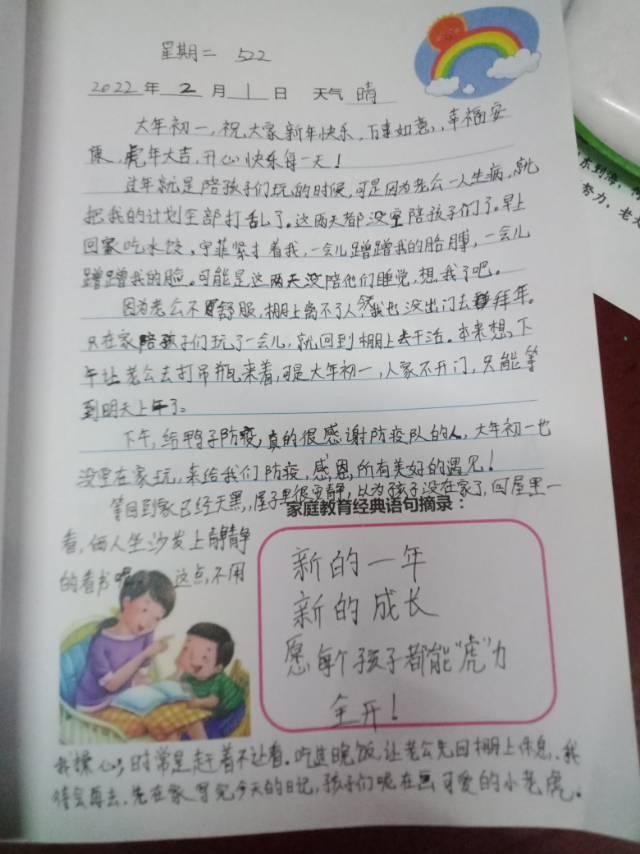 星期二 522
2022年 2 月 1 日 天气 晴
大年初一,祝大家新年快乐,万事如意,幸福安
康,虎年大吉,开心快乐每一天!
过年就是陪孩子们玩的时候,可是因为老公一人生病,就
把我的计划全部打乱了。这两天都没空陪孩子们了。早上
回家吃水饺,宁菲紧挨着我,一会儿蹭蹭我的胳膊,一会儿
蹭蹭我的脸。可能是这两天没陪他们睡觉,想我了吧。
因为老公不舒服,棚上离不了人,我也没出门去拜年。
只在家陪孩子们玩了一会儿,就回到棚上去干活。本来想下
午让老公去打吊瓶来着,可是大年初一,人家不开门,只能等
到明天上午了。
下午,给鸭子防疫,真的很感谢防疫队的人,大年初一也
没空在家玩,来给我们防疫,感恩所有美好的遇见!
等回到家已经天黑,屋子里很安静,以为孩子没在家了,回屋里一
家庭教育经典语句摘录:
看,俩人坐沙发上静静
的看书呢 这点,不用
新的一年
新的成长
愿每个孩子都能“虎”力
全开!
我操心,时常是赶着不让看。吃过晚饭,让老公先回棚上休息,我
待会再去,先在家写完今天的日记,孩子们呢在画可爱的小老虎。